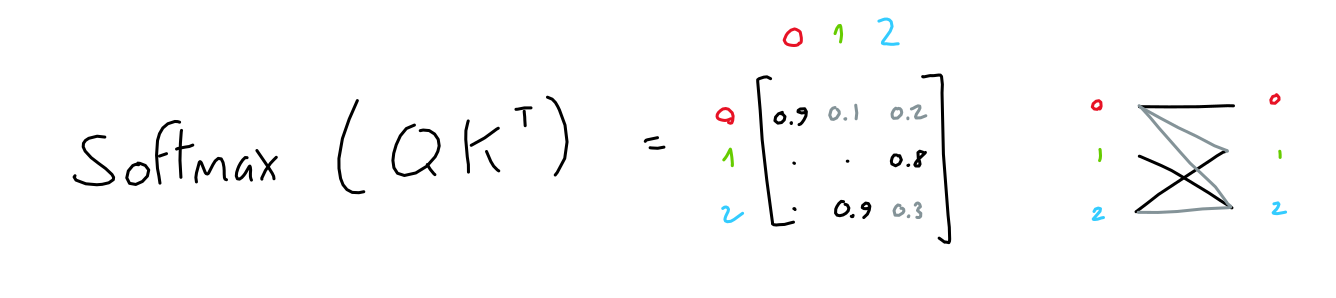 0 1 2
Softmax (QKᵀ) =
0 0.9 0.1 0.2
1 . . 0.8
2 . 0.9 0.3
0 0
1 1
2 2